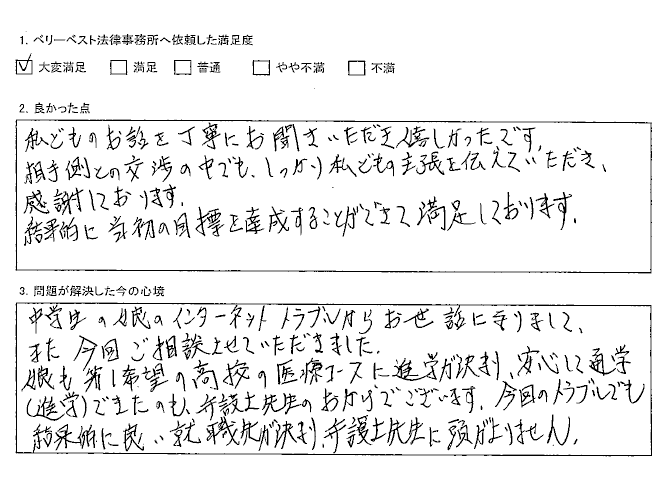 1. ベリーベスト法律事務所へ依頼した満足度
大変満足 満足 普通 やや不満 不満
2. 良かった点
私どものお話を丁寧にお聞きいただき嬉しかったです。
相手側との交渉の中でも、しっかり私どもの主張を伝えていただき、
感謝しております。
結果的に当初の目標を達成することができて満足しております。
3. 問題が解決した今の心境
中学生の娘のインターネットトラブルからお世話になりまして、
また今回ご相談させていただきました。
娘も第1希望の高校の医療コースに進学が決まり、安心して通学
(進学)できたのも、弁護士先生のおかげでございます。今回のトラブルでも
結果的に良い就職先が決まり、弁護士先生に頭が上りません。